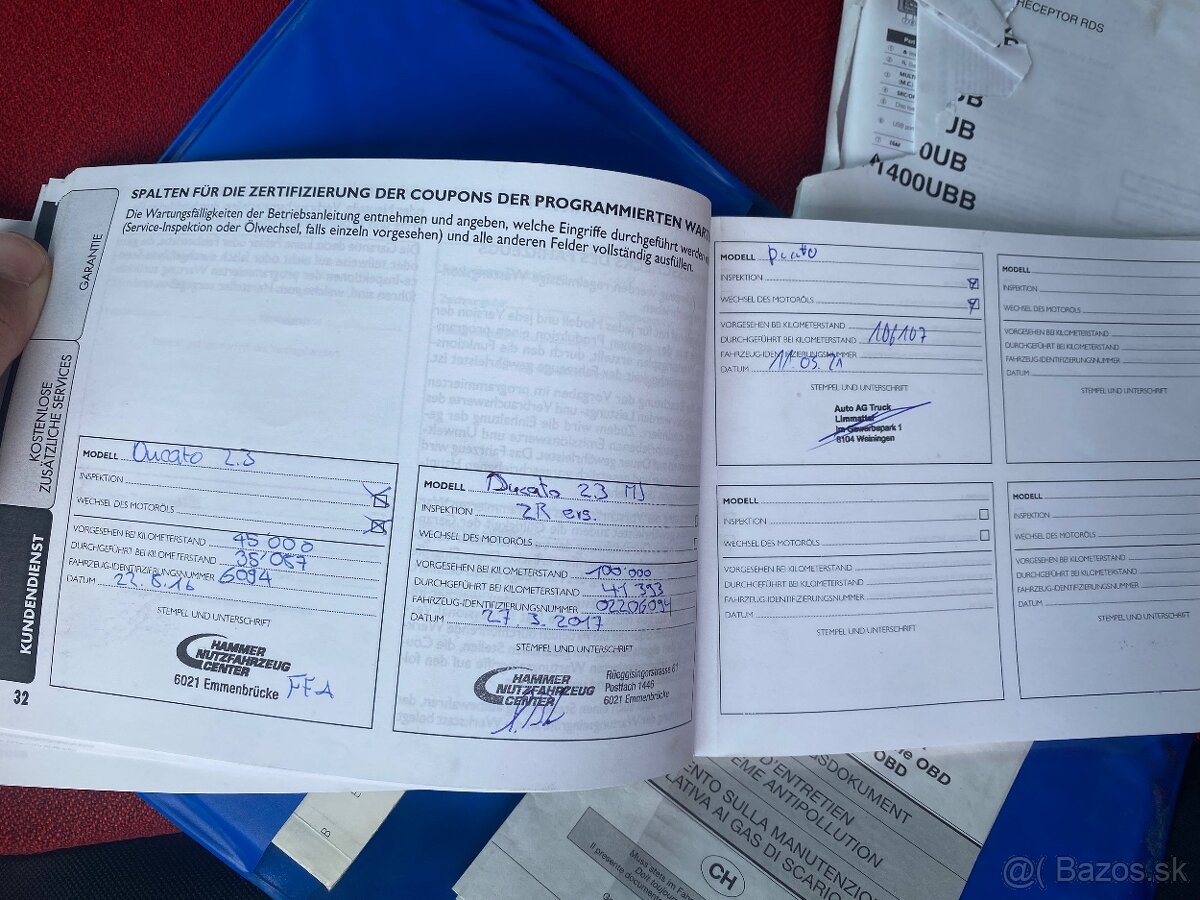 HECEPTOR RDS
UB
UB
0UB
A1400UBB
SPALTEN FÜR DIE ZERTIFIZIERUNG DER COUPONS DER PROGRAMMIERTEN WART
Die Wartungsfälligkeiten der Betriebsanleitung entnehmen und angeben, welche Eingriffe durchgeführt werden
(Service-Inspektion oder Ölwechsel, falls einzeln vorgesehen) und alle anderen Felder vollständig ausfüllen.
GARANTIE
KOSTENLOSE
ZUSÄTZLICHE SERVICES
KUNDENDIENST
32
MODELL Ducato 2.3
INSPEKTION
WECHSEL DES MOTORÖLS
VORGESEHEN BEI KILOMETERSTAND 45 000
DURCHGEFÜHRT BEI KILOMETERSTAND 35'067
FAHRZEUG-IDENTIFIZIERUNGSNUMMER 6094
DATUM 23.8.16
STEMPEL UND UNTERSCHRIFT
HAMMER
NUTZFAHRZEUG
CENTER
6021 Emmenbrücke
MODELL Ducato 2.3 MJ
INSPEKTION ZR ers.
WECHSEL DES MOTORÖLS
VORGESEHEN BEI KILOMETERSTAND 100'000
DURCHGEFÜHRT BEI KILOMETERSTAND 41 393
FAHRZEUG-IDENTIFIZIERUNGSNUMMER 02206094
DATUM 27 3. 2017
STEMPEL UND UNTERSCHRIFT
HAMMER
NUTZFAHRZEUG
CENTER
Rüeggisingerstrasse 61
Postfach 1446
6021 Emmenbrücke
MODELL Ducato
INSPEKTION
WECHSEL DES MOTORÖLS
VORGESEHEN BEI KILOMETERSTAND
DURCHGEFÜHRT BEI KILOMETERSTAND 106107
FAHRZEUG-IDENTIFIZIERUNGSNUMMER
DATUM 11.05.21
STEMPEL UND UNTERSCHRIFT
Auto AG Truck
Limmattal
Im Gewerbepark 1
8104 Weiningen
MODELL
INSPEKTION
WECHSEL DES MOTORÖLS
VORGESEHEN BEI KILOMETERSTAND
DURCHGEFÜHRT BEI KILOMETERSTAND
FAHRZEUG-IDENTIFIZIERUNGSNUMMER
DATUM
STEMPEL UND UNTERSCHRIFT
MODELL
INSPEKTION
WECHSEL DES MOTORÖLS
VORGESEHEN BEI KILOMETERSTAND
DURCHGEFÜHRT BEI KILOMETERSTAND
FAHRZEUG-IDENTIFIZIERUNGSNUMMER
DATUM
STEMPEL UND UNTERSCHRIFT
MODELL
INSPEKTION
WECHSEL DES MOTORÖLS
VORGESEHEN BEI KILOMETERSTAND
DURCHGEFÜHRT BEI KILOMETERSTAND
FAHRZEUG-IDENTIFIZIERUNGSNUMMER
DATUM
STEMPEL UND UNTERSCHRIFT
OBD
OBD
GSDOKUMENT
D'ENTRETIEN
EME ANTIPOLLUTION
ENTO SULLA MANUTENZIO
LATIVA AI GAS DI SCARIC
Muss stets im Fah
Doit toujour
Il presente docume
CH
Bazos.sk